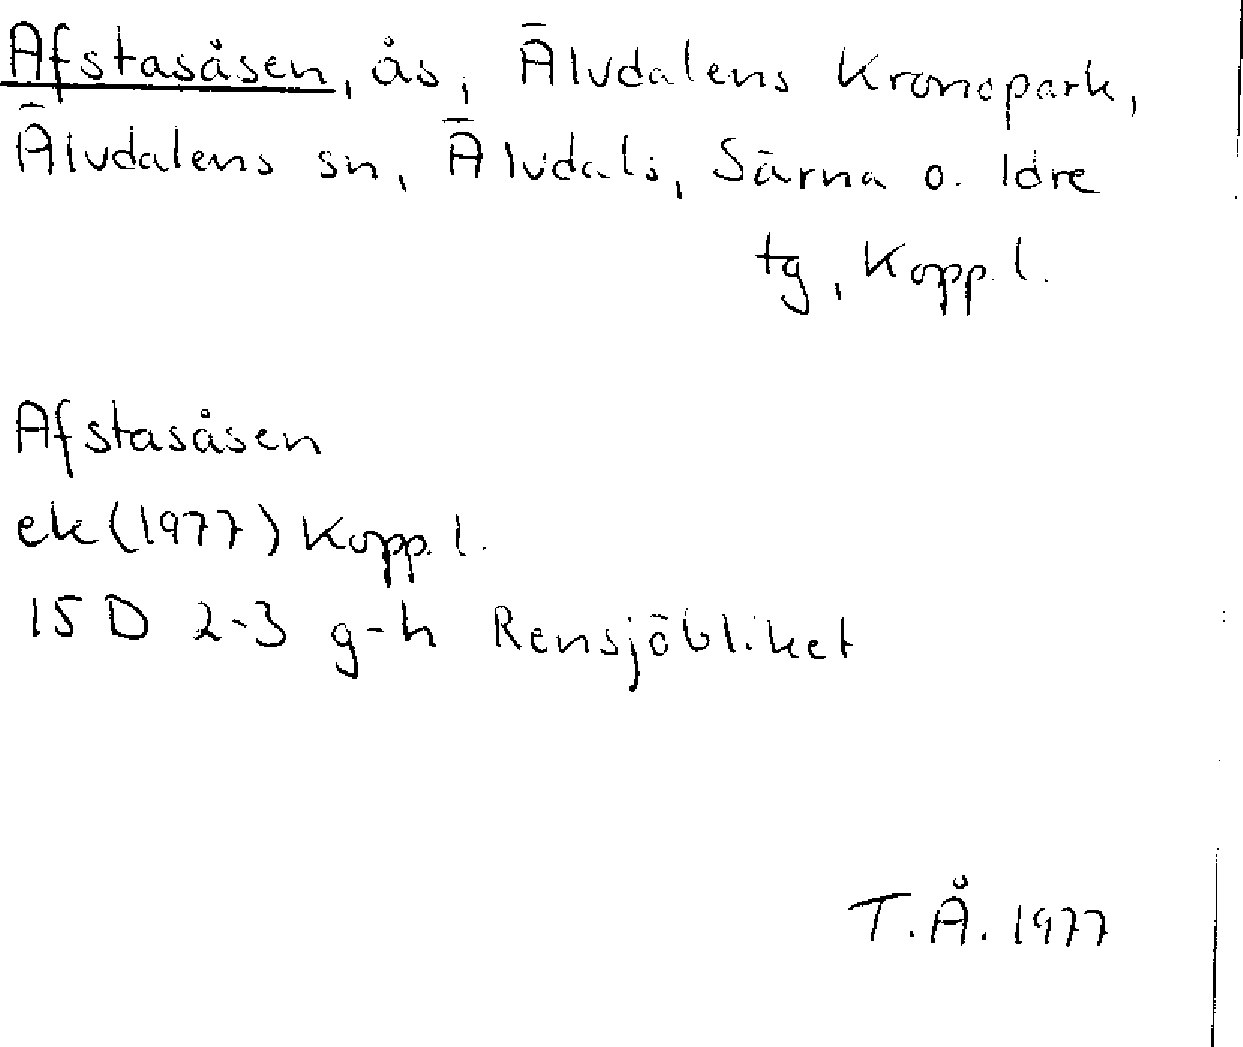 Afstasåsen, ås, Älvdalens Kronopark,
Älvdalens sn, Älvdals, Särna o. Idre
tg, Kopp. l.
Afstasåsen
ek (1977) Kopp. l.
15 D 2-3 g-h Rensjöbliket
T.Å. 1977